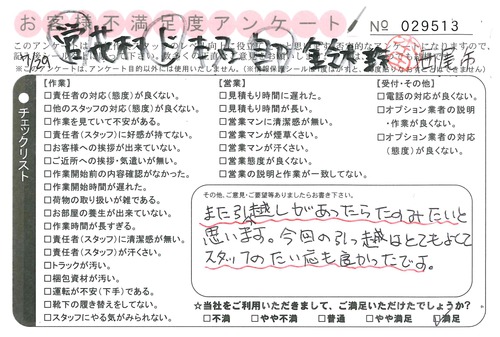 お客様不満足度アンケート
No 029513
7/29
チェックリスト
【作業】
□責任者の対応(態度)が良くない。
□他のスタッフの対応(態度)が良くない。
□作業を見ていて不安がある。
□責任者(スタッフ)に好感が持てない。
□お客様への挨拶が出来ていない。
□ご近所への挨拶・気遣いが無い。
□作業開始前の内容確認がなかった。
□作業開始時間が遅れた。
□荷物の取り扱いが雑である。
□お部屋の養生が出来ていない。
□作業時間が長すぎる。
□責任者(スタッフ)に清潔感が無い。
□責任者(スタッフ)が汗くさい。
□トラックが汚い。
□梱包資材が汚い。
□運転が不安(下手)である。
□靴下の履き替えをしてない。
□スタッフにやる気がみられない。
【営業】
□見積もり時間に遅れた。
□見積もり時間が長い。
□営業マンに清潔感が無い。
□営業マンが煙草くさい。
□営業マンが汗くさい。
□営業態度が良くない。
□営業の説明と作業が一致してない。
【受付・その他】
□電話の対応が良くない。
□オプション業者の説明
・作業が良くない。
□オプション業者の対応
(態度)が良くない。
その他、ご意見・ご要望等ありましたらお書き下さい。
また引越しがあったらたのみたいと
思います。今回の引っ越はとてもよくて
スタッフのたい応も良かったです。
☆当社をご利用いただきまして、ご満足いただけたでしょうか?
□不満 □やや不満 □普通 □やや満足 □満足